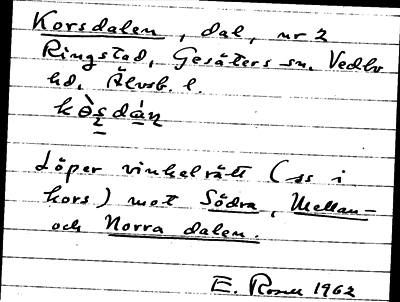 Korsdalen, dal, nr 2
Ringstad, Gesäters sn. Vedbo
hd. Älvsb. l.
kòs̱dáṉ
Löper vinkelrätt (ss i
kors) mot Södra, Mellan-
och Norra dalen.
E. 1962